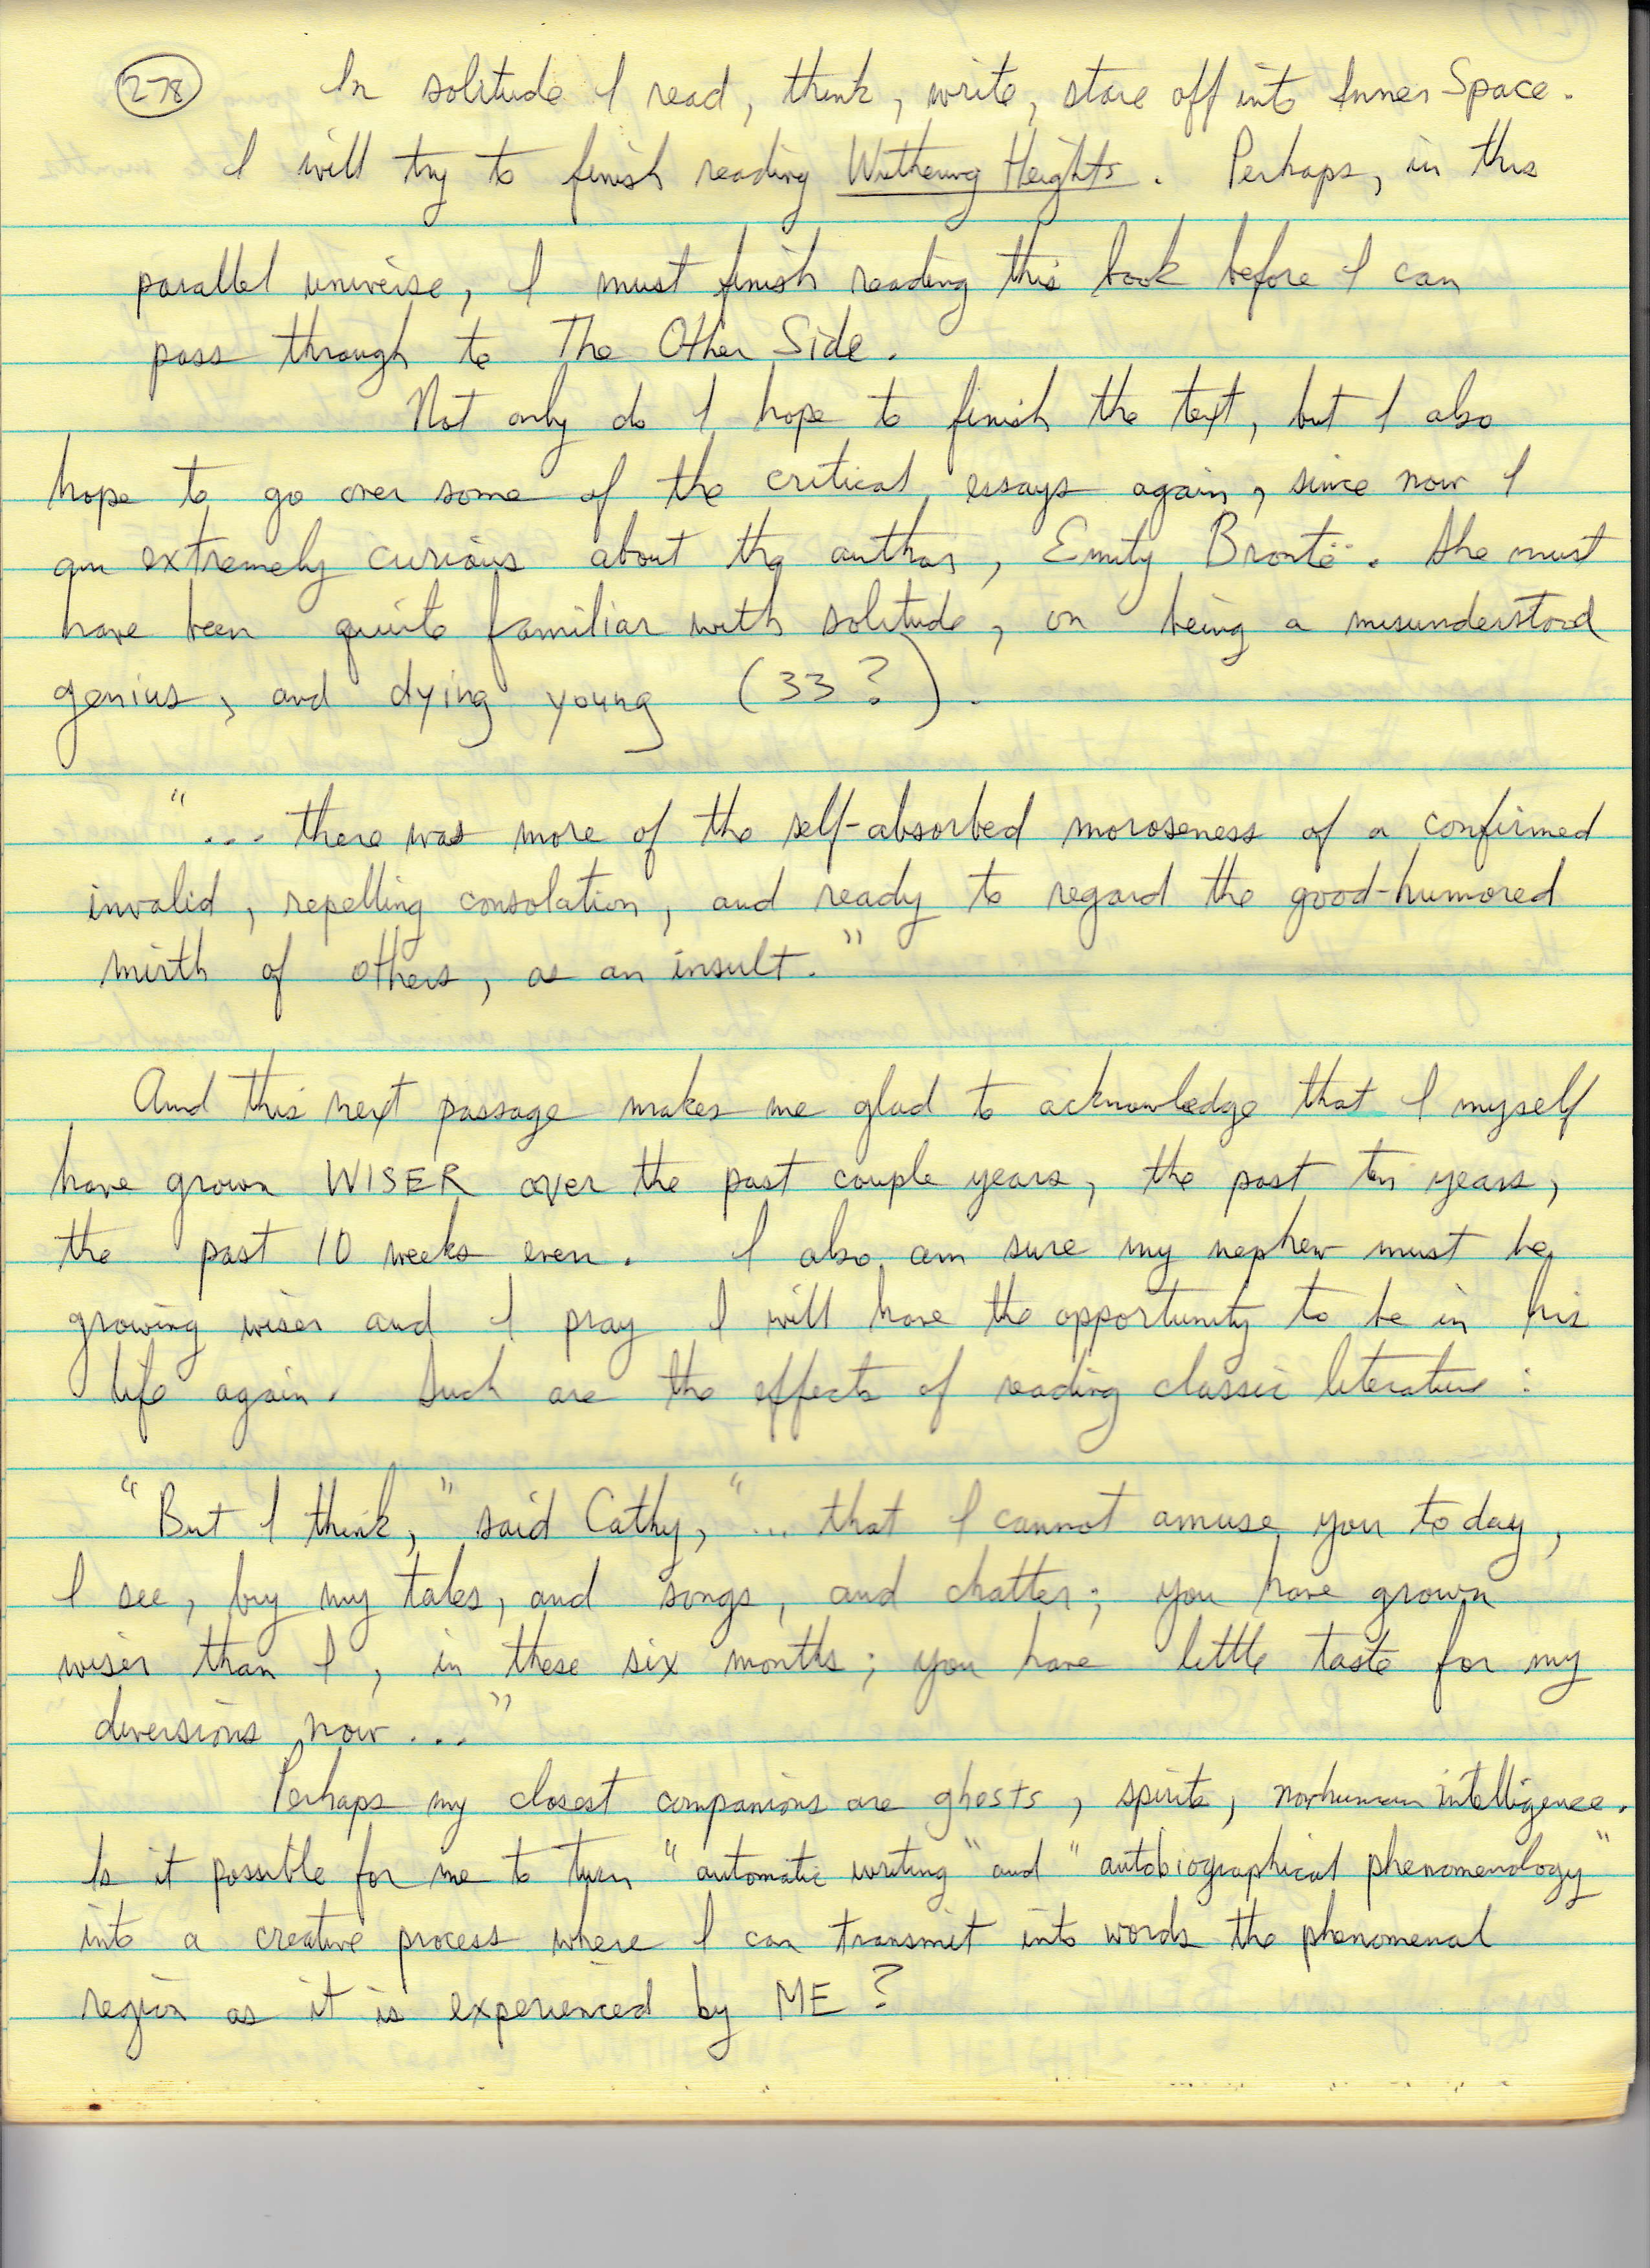 278 In solitude I read, think, write, stare off into Inner Space.
I will try to finish reading Wuthering Heights. Perhaps, in this
parallel universe, I must finish reading this book before I can
pass through to The Other Side.
Not only do I hope to finish the text, but I also
hope to go over some of the critical essays again, since now I
am extremely curious about the author, Emily Brontë. She must
have been quite familiar with solitude, on being a misunderstood
genius, and dying young (33?).
"... there was more of the self-absorbed moroseness of a confirmed
invalid, repelling consolation, and ready to regard the good-humored
mirth of others, as an insult."
And this next passage makes me glad to acknowledge that I myself
have grown WISER over the past couple years, the past ten years,
the past 10 weeks even. I also am sure my nephew must be
growing wiser and I pray I will have the opportunity to be in his
life again. Such are the effects of reading classic literature:
"But I think," said Cathy, "... that I cannot amuse you today,
I see, by my tales, and songs, and chatter; you have grown
wiser than I, in these six months; you have little taste for my
diversions now..."
Perhaps my closest companions are ghosts, spirits, nonhuman intelligence.
Is it possible for me to turn "automatic writing" and "autobiographical phenomenology"
into a creative process where I can transmit into words the phenomenal
region as it is experienced by ME?